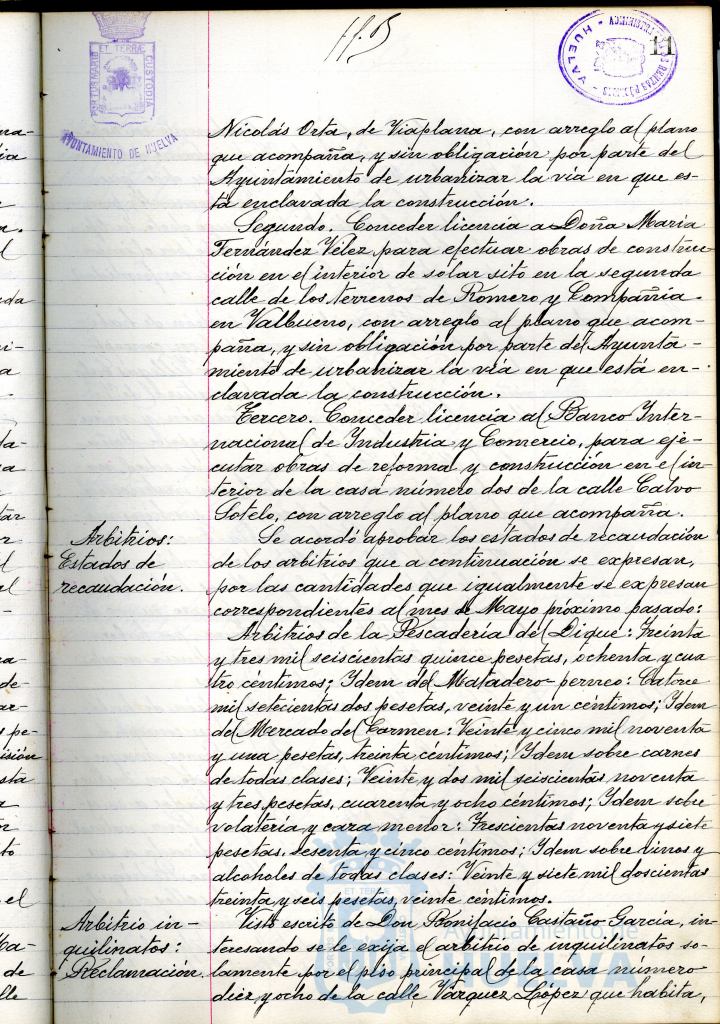 11
ET TERRÆ
PORTUS MARIS
CUSTODIA
AYUNTAMIENTO DE HUELVA
HUELVA
Nicolás Orta, de Viaplana, con arreglo al plano
que acompaña, y sin obligación por parte del
Ayuntamiento de urbanizar la vía en que es-
tá enclavada la construcción.
Segundo. Conceder licencia a Doña María
Fernández Vélez para efectuar obras de construc-
ción en el interior de solar sito en la segunda
calle de los terrenos de Romero y Compañia
en Valbueno, con arreglo al plano que acom-
paña, y sin obligación por parte del Ayunta-
miento de urbanizar la vía en que está en-
clavada la construcción.
Tercero. Conceder licencia al Banco Inter-
nacional de Industria y Comercio, para eje-
cutar obras de reforma y construcción en el in-
terior de la casa número dos de la calle Calvo
Sotelo, con arreglo al plano que acompaña.
Arbitrios:
Estados de
recaudación.
Se acordó aprobar los estados de recaudación
de los arbitrios que a continuación se expresan,
por las cantidades que igualmente se expresan
correspondientes al mes de Mayo próximo pasado:
Arbitrios de la Pescadería del Dique: Treinta
y tres mil seiscientas quince pesetas, ochenta y cua
tro céntimos; Idem del Matadero-perneo: Catorce
mil setecientas dos pesetas, veinte y un céntimos; Idem
del Mercado del Carmen: Veinte y cinco mil noventa
y una pesetas, treinta céntimos; Idem sobre carnes
de todas clases; Veinte y dos mil seiscientas noventa
y tres pesetas, cuarenta y ocho céntimos; Idem sobre
volatería y caza menor: Trescientas noventa y siete
pesetas, sesenta y cinco céntimos; Idem sobre vinos y
alcoholes de todas clases: Veinte y siete mil doscientas
treinta y seis pesetas, veinte céntimos.
Arbitrio in-
quilinatos:
Reclamación.
Visto escrito de Don Bonifacio Castaño García, in-
teresando se le exija el arbitrio de inquilinatos so-
lamente por el piso principal de la casa número
diez y ocho de la calle Vázquez López que habita,
Ayuntamiento de
HUELVA